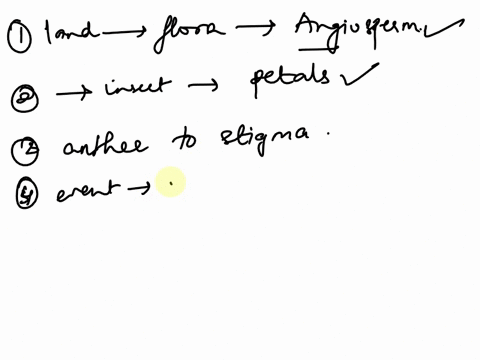 ① land → flora → Angiosperm ✓
② → insect → petals ✓
③ anthee to stigma .
④ event → .